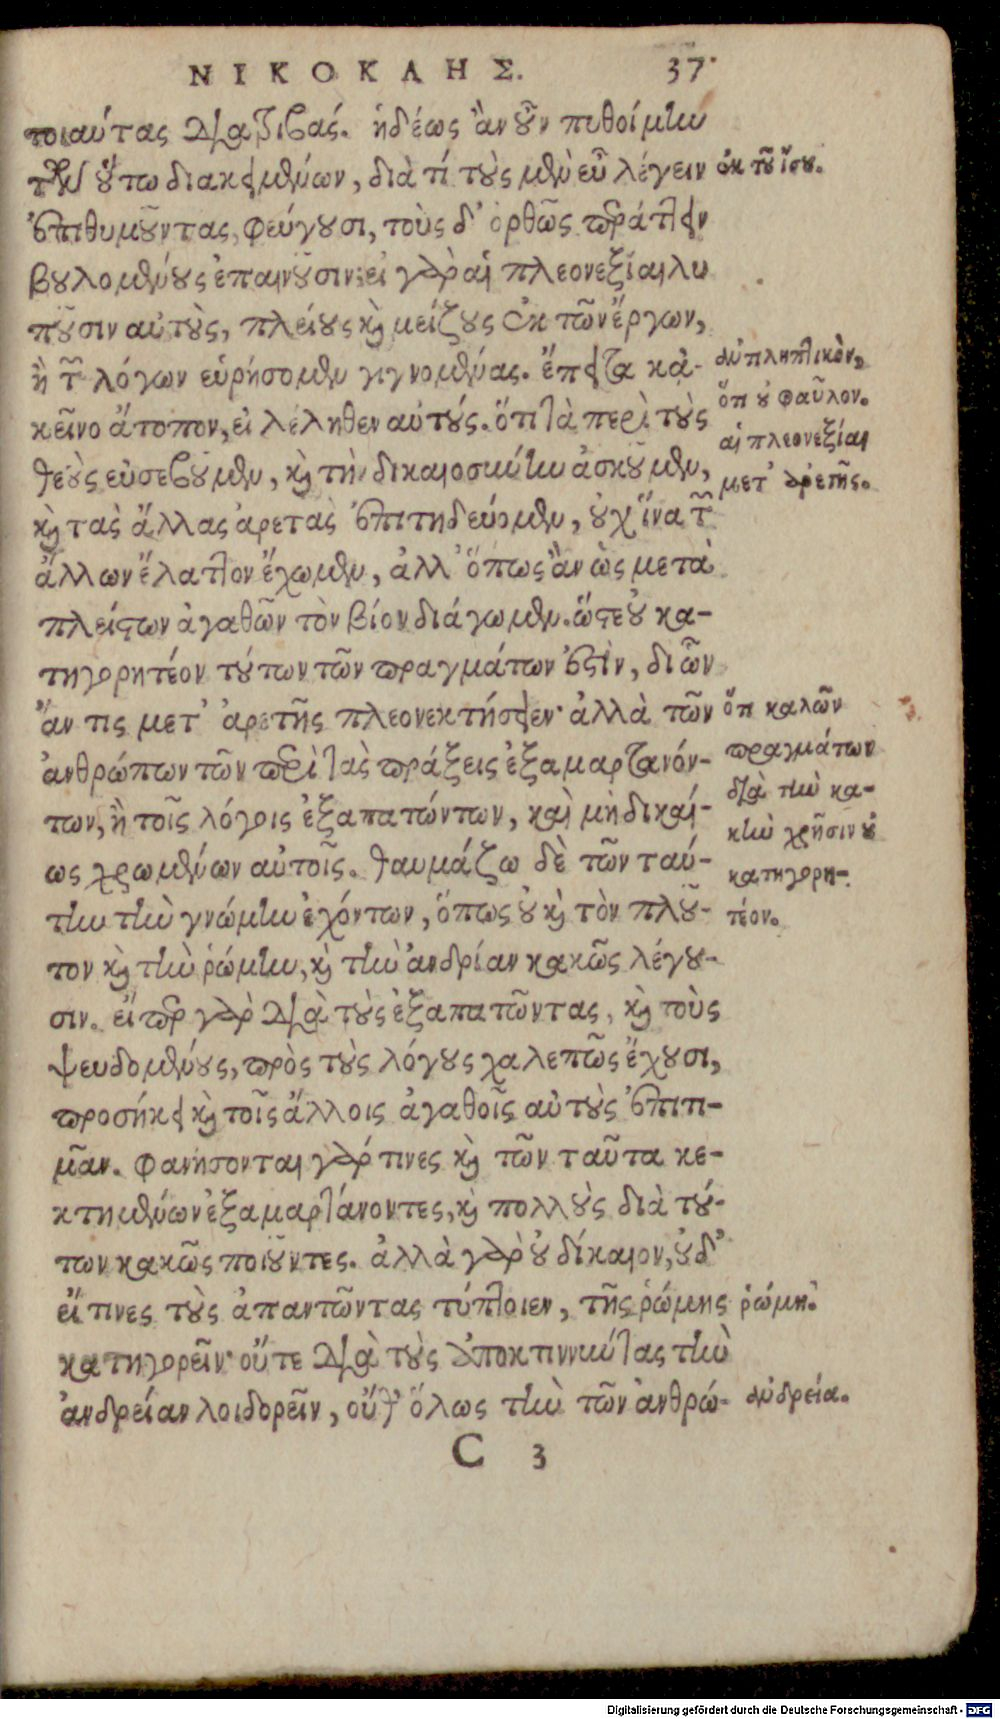 ΝΙΚΟΚΛΗΣ. 37
τοιαύτας διατριβάς. ἡδέως ἂν οὖν πυθοίμην
τῶν οὕτω διακειμένων, διὰ τί τοὺς μὲν εὖ λέγειν
ἐπιθυμοῦντας, φεύγουσι, τοὺς δ' ὀρθῶς πράττειν
βουλομένους ἐπαινοῦσιν; εἰ γὰρ αἱ πλεονεξίαι λυ
ποῦσιν αὐτοὺς, πλείους καὶ μείζους ἐκ τῶν ἔργων,
ἢ τῶν λόγων εὑρήσομεν γιγνομένας. ἔπειτα κἀ-
κεῖνο ἄτοπον, εἰ λέληθεν αὐτούς. ὅτι τὰ περὶ τοὺς
θεοὺς εὐσεβοῦμεν, καὶ τὴν δικαιοσύνην ἀσκοῦμεν,
καὶ τὰς ἄλλας ἀρετὰς ἐπιτηδεύομεν, οὐχ ἵνα τῶν
ἄλλων ἔλαττον ἔχωμεν, ἀλλ' ὅπως ἂν ὡς μετὰ
πλείστων ἀγαθῶν τὸν βίον διάγωμεν. ὥστε οὐ κα-
τηγορητέον τούτων τῶν πραγμάτων ἐστὶν, δι ὧν
ἄν τις μετ' ἀρετῆς πλεονεκτήσειεν· ἀλλὰ τῶν
ἀνθρώπων τῶν περὶ τὰς πράξεις ἐξαμαρτανόν-
των, ἢ τοῖς λόγοις ἐξαπατώντων, καὶ μὴ δικαί-
ως χρωμένων αὐτοῖς. θαυμάζω δὲ τῶν ταύ-
την τὴν γνώμην ἐχόντων, ὅπως οὐ καὶ τὸν πλοῦ-
τον καὶ τὴν ῥώμην, καὶ τὴν ἀνδρίαν κακῶς λέγου-
σιν. εἴπερ γὰρ διὰ τοὺς ἐξαπατῶντας, καὶ τοὺς
ψευδομένους, πρὸς τοὺς λόγους χαλεπῶς ἔχουσι,
προσήκει καὶ τοῖς ἄλλοις ἀγαθοῖς αὐτοὺς ἐπιτι-
μᾶν. φανήσονται γάρ τινες καὶ τῶν ταῦτα κε-
κτημένων ἐξαμαρτάνοντες, καὶ πολλοὺς διὰ τού-
των κακῶς ποιοῦντες. ἀλλὰ γὰρ οὐ δίκαιον, οὐδ'
εἴ τινες τοὺς ἀπαντῶντας τύπτοιεν, τῆς ῥώμης
κατηγορεῖν· οὔτε διὰ τοὺς ἀποκτιννύντας τὴν
ἀνδρείαν λοιδορεῖν, οὔθ' ὅλως τὴν τῶν ἀνθρώ-
C 3
ἐκ τοῦ ἴσου.
ἀνπληπτικὸν,
ὅτι οὐ φαῦλον.
αἱ πλεονεξίαι
μετ' ἀρετῆς.
ὅτι καλῶν
πραγμάτων
διὰ τὴν κα-
κὴν χρῆσιν οὐ
κατηγορη-
τέον.
ῥώμη.
ἀνδρεία.
Digitalisierung gefördert durch die Deutsche Forschungsgemeinschaft - DFG